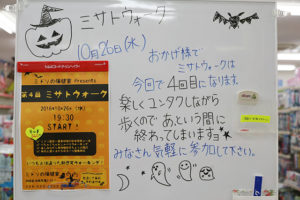 ミサトウォーク
10月26日(水)
おかげ様で
ミサトウォークは
今回で4回目になります。
楽しくユンタクしながら
歩くので あっという間に
終わってしまいますョ
みなさん気軽に参加して下さい。
ミドリの保健室 Presents
第4回 ミサトウォーク
2016年10月26日(水)
19:30
START!